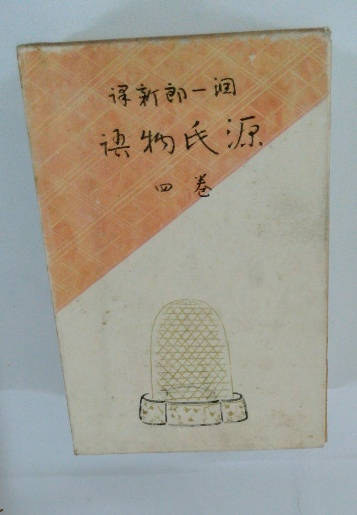 潤一郎新譯
源氏物語
巻四